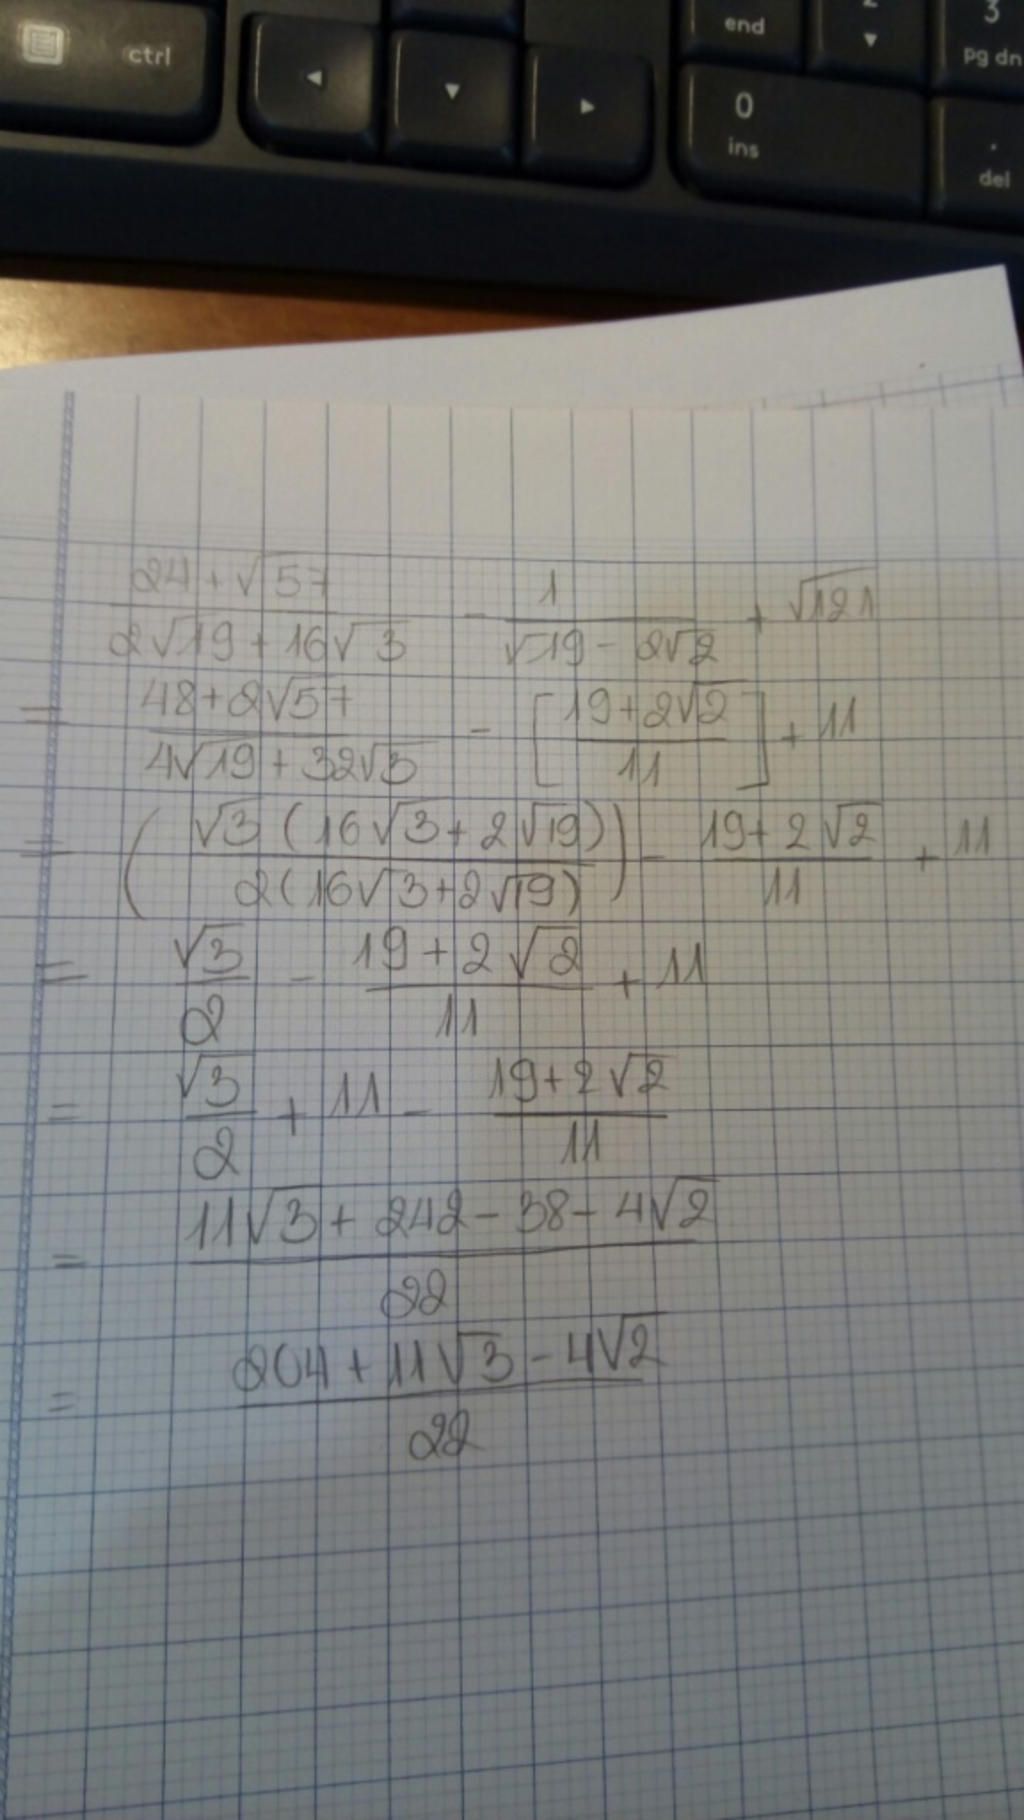 ctrl
end
3
pg dn
0
ins
.
del
24+√57 / 2√19+16√3 - 1 / √19-2√2 + √121
= 48+2√57 / 4√19+32√3 - [19+2√2 / 11] + 11
= (√3(16√3+2√19) / 2(16√3+2√19)) - 19+2√2 / 11 + 11
= √3 / 2 - 19+2√2 / 11 + 11
= √3 / 2 + 11 - 19+2√2 / 11
= 11√3+242-38-4√2 / 22
= 204+11√3-4√2 / 22